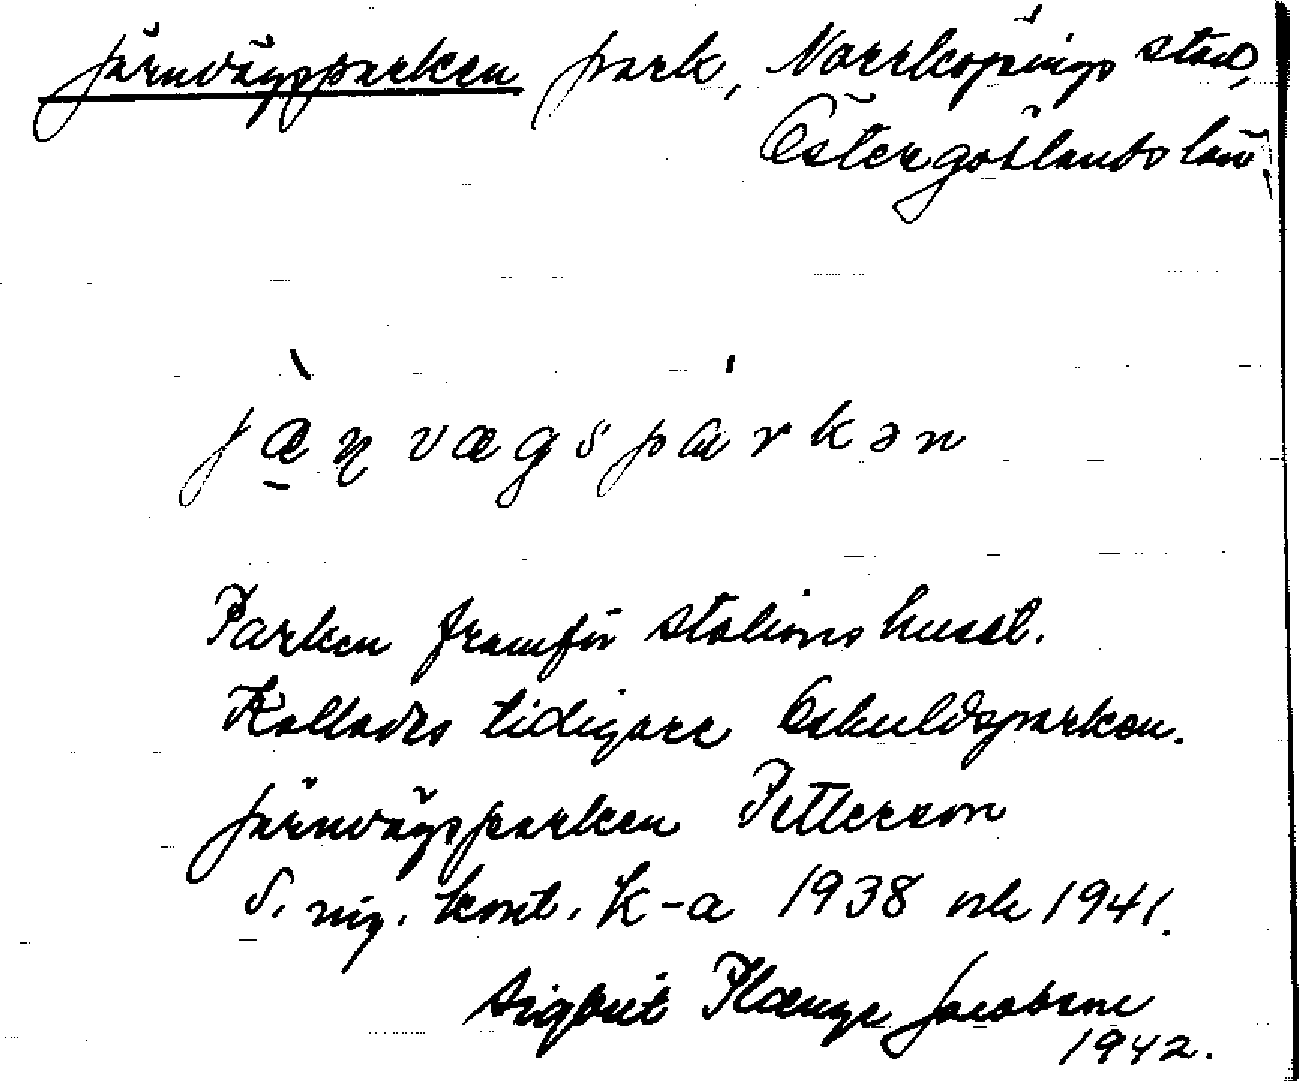 Järnvägsparken park, Norrköpings stad,
Östergötlands län
jæ̱ɳvægsparkən
Parken framför stationshuset.
Kallades tidigare Eskuldsparken.
Järnvägsparken Petterson
S. ing. kont. K-a 1938 och 1941.
Sigbrit Plænge Jacobson
1942.